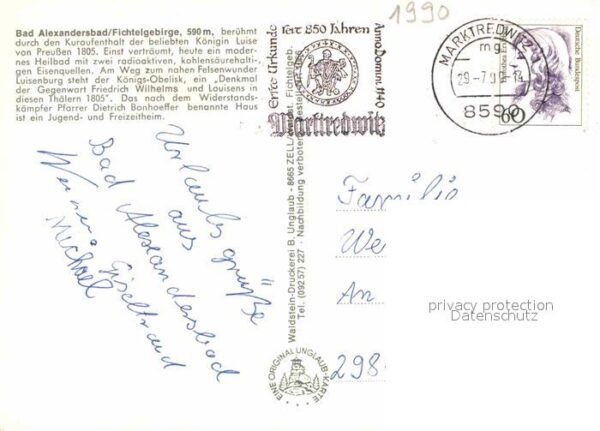 Bad Alexandersbad/Fichtelgebirge, 590 m, berühmt
durch den Kuraufenthalt der beliebten Königin Luise
von Preußen 1805. Einst verträumt, heute ein moder-
nes Heilbad mit zwei radioaktiven, kohlensäurehalti-
gen Eisenquellen. Am Weg zum nahen Felsenwunder
Luisenburg steht der Königs-Obelisk, ein „Denkmal
der Gegenwart Friedrich Wilhelms und Louisens in
diesen Thälern 1805". Das nach dem Widerstands-
kämpfer Pfarrer Dietrich Bonhoeffer benannte Haus
ist ein Jugend- und Freizeitheim.
Urlaubsgrüße
aus
Bad Alexandersbad
Werner Giseltraud
Michael
Waldstein-Druckerei B. Unglaub - 8665 ZELL
Tel. (09257) 227 - Nachbildung verboten
EINE ORIGINAL UNGLAUB-KARTE
1990
Erste Urkunde
seit 850 Jahren
Anno Domini 1140
Marktredwitz
MARKTREDWITZ 1
mg
29-7.90-14
8590
Deutsche Bundespost
60
Familie
We
An
298
privacy protection
Datenschutz